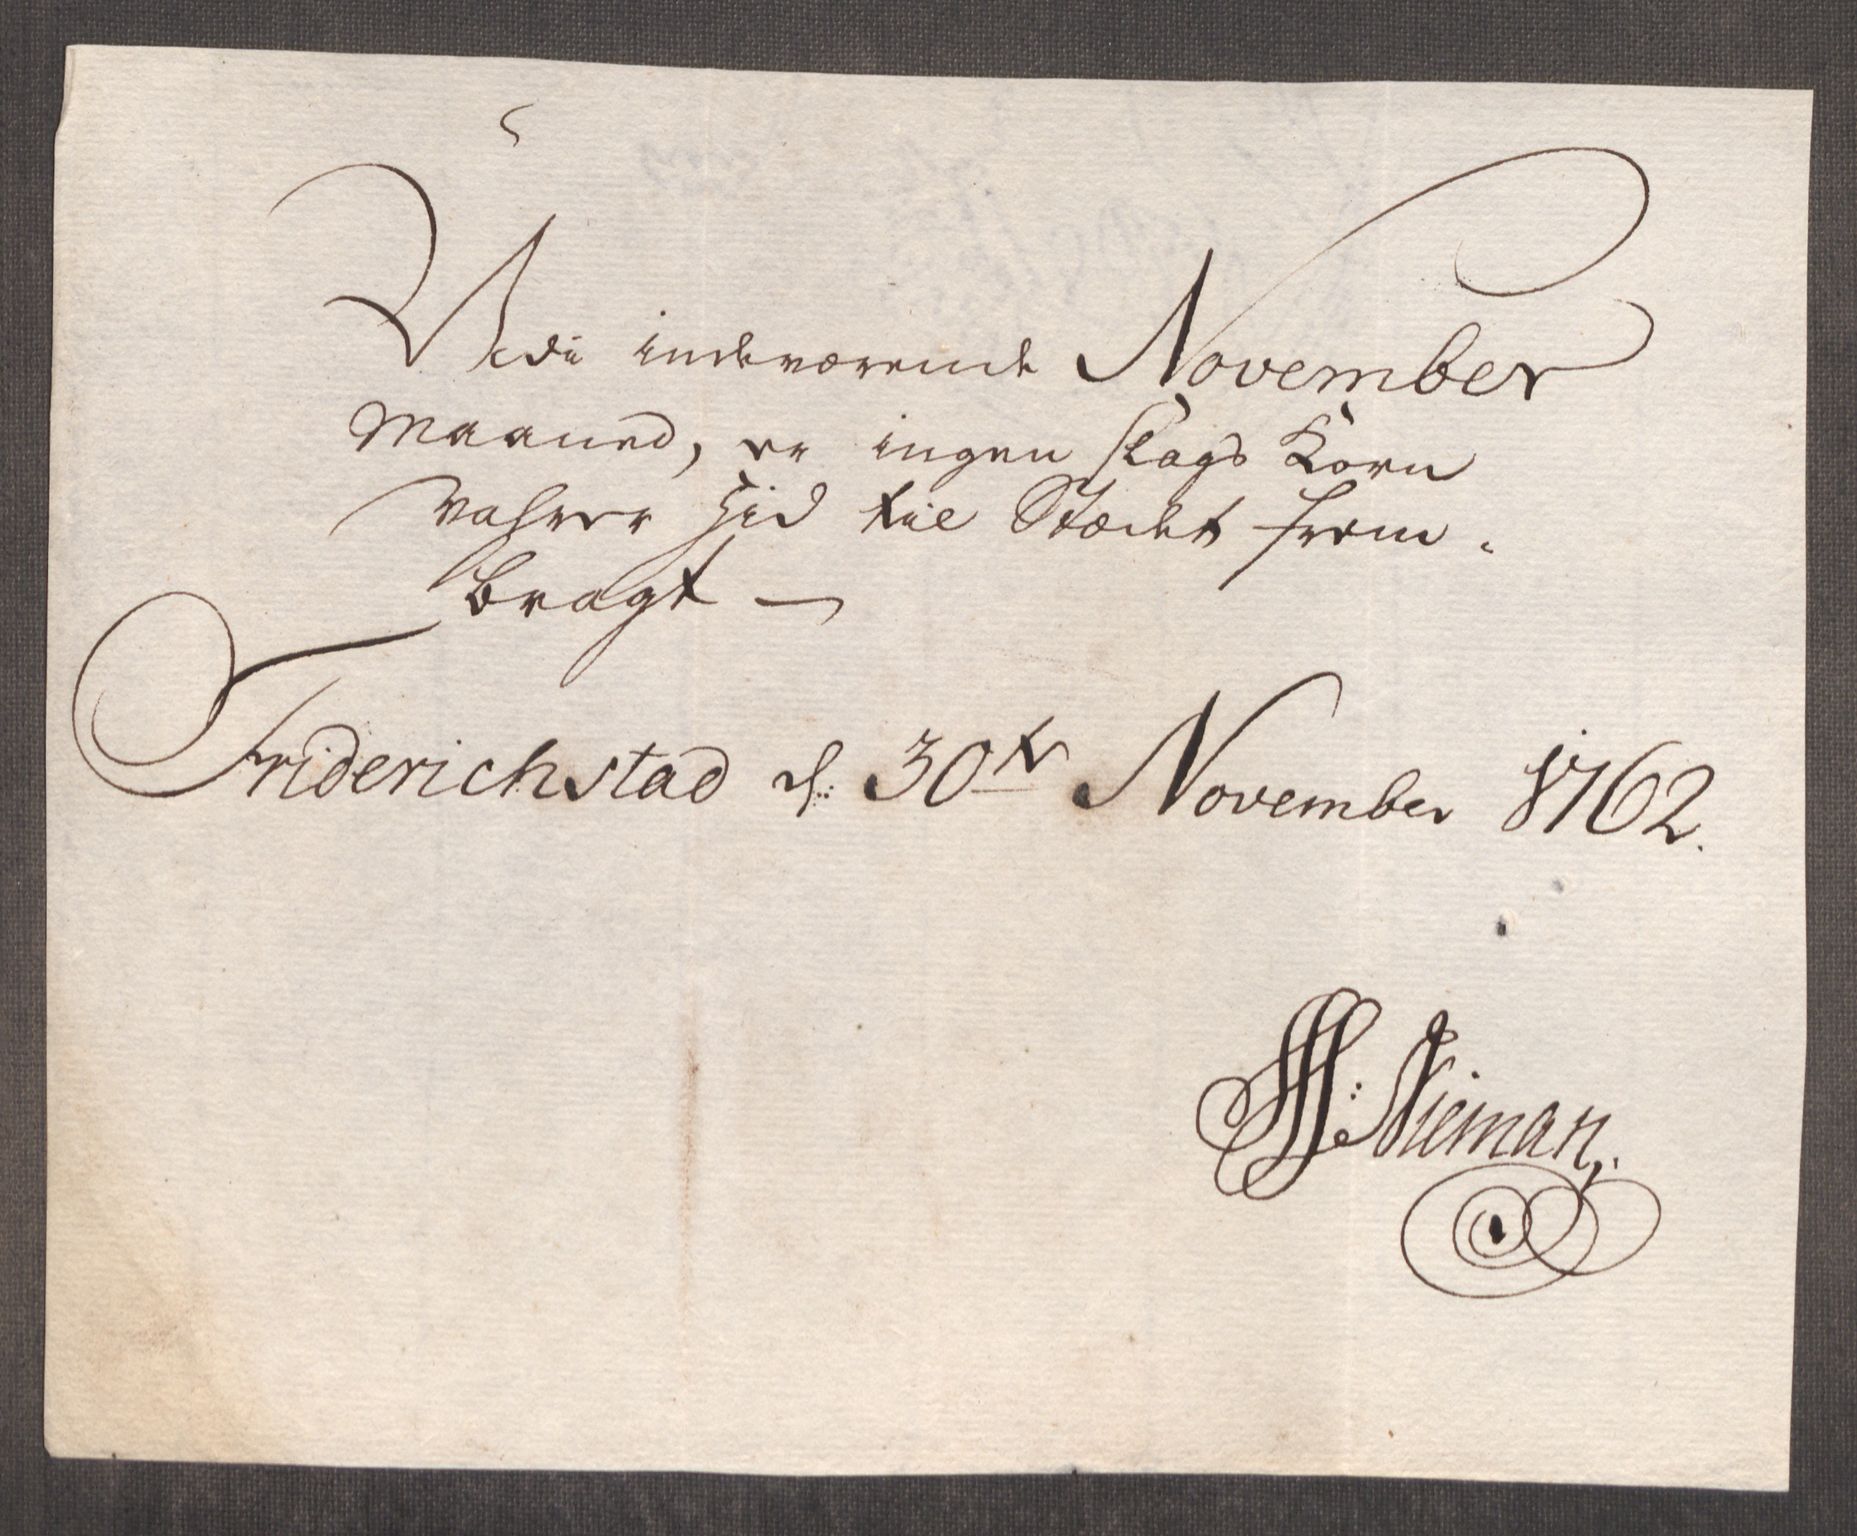 Udi indeværende November
Maaned, er ingen slags Korn
vahrer hid til Stædet frem-
bragt —
Friderichstad d: 30te November 1762.
Nieman,